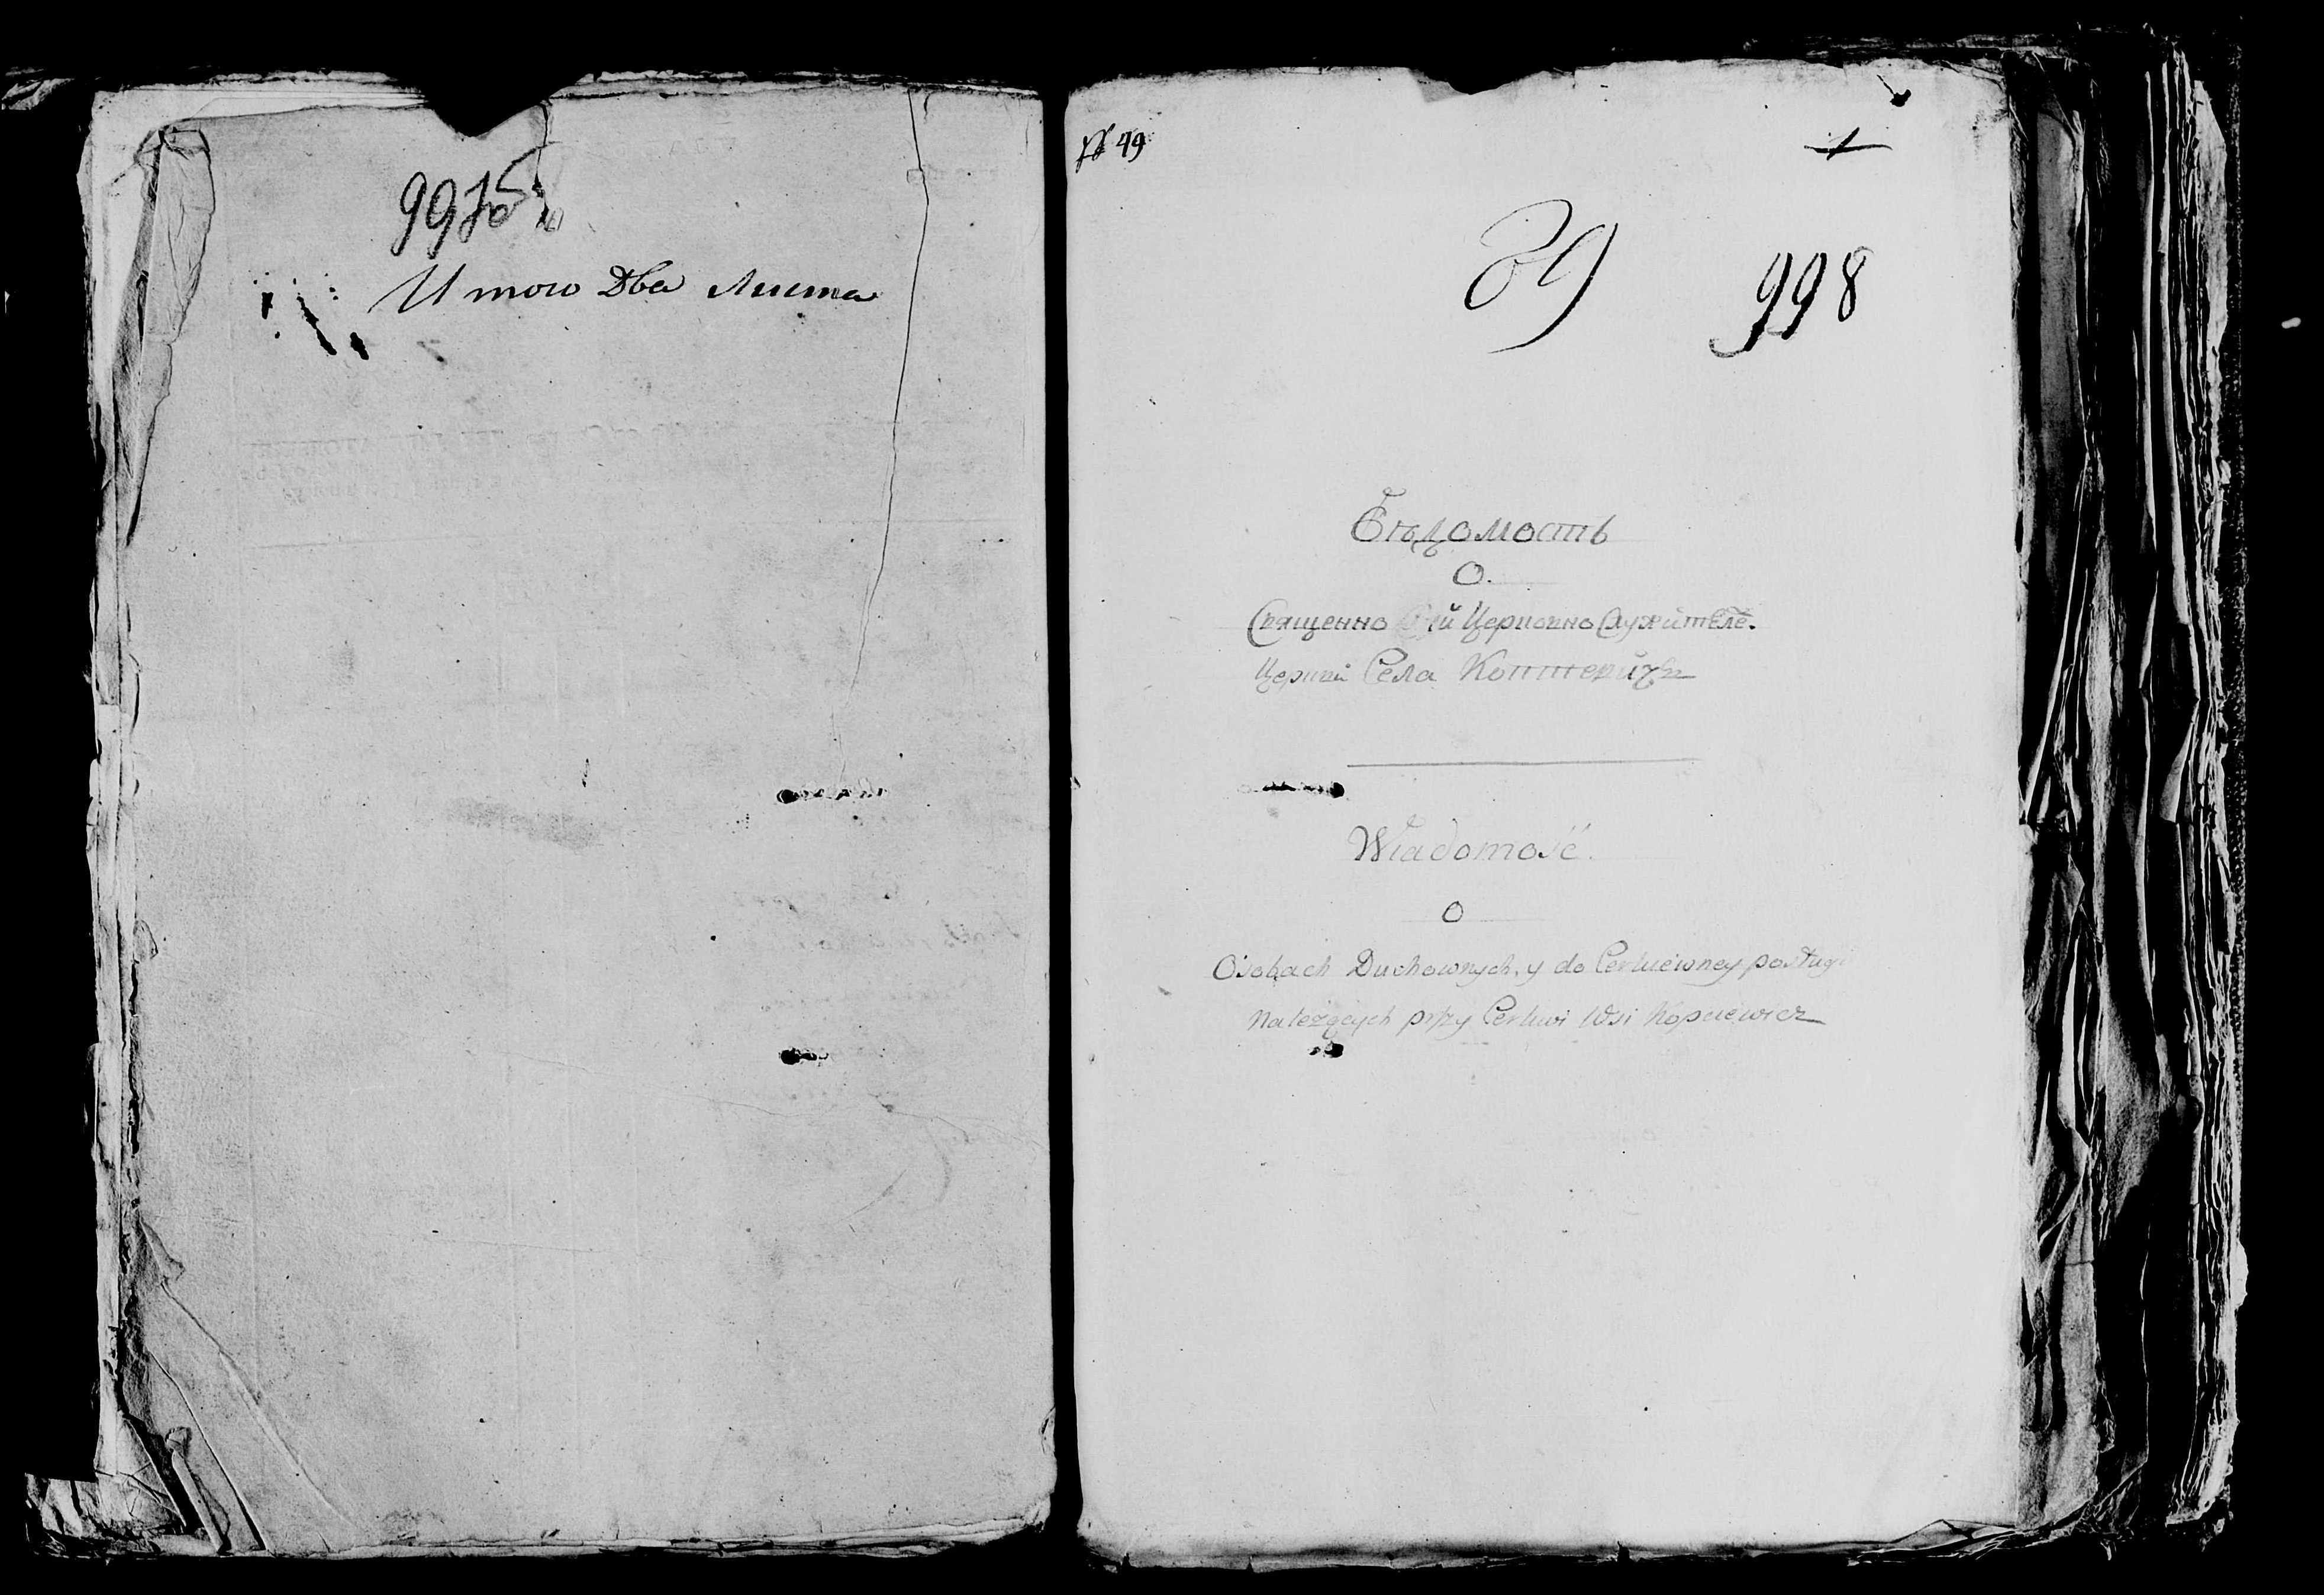 И того Два листа
№ 49
1
39
998
Вѣдомость
О.
Священно и Церковно Служителѣ.
Церкви Села
Wiadomość.
O
Osobach Duchownych, y do Cerkiewney posługi
Należących przy Cerkwi Wsi Kopciewicz